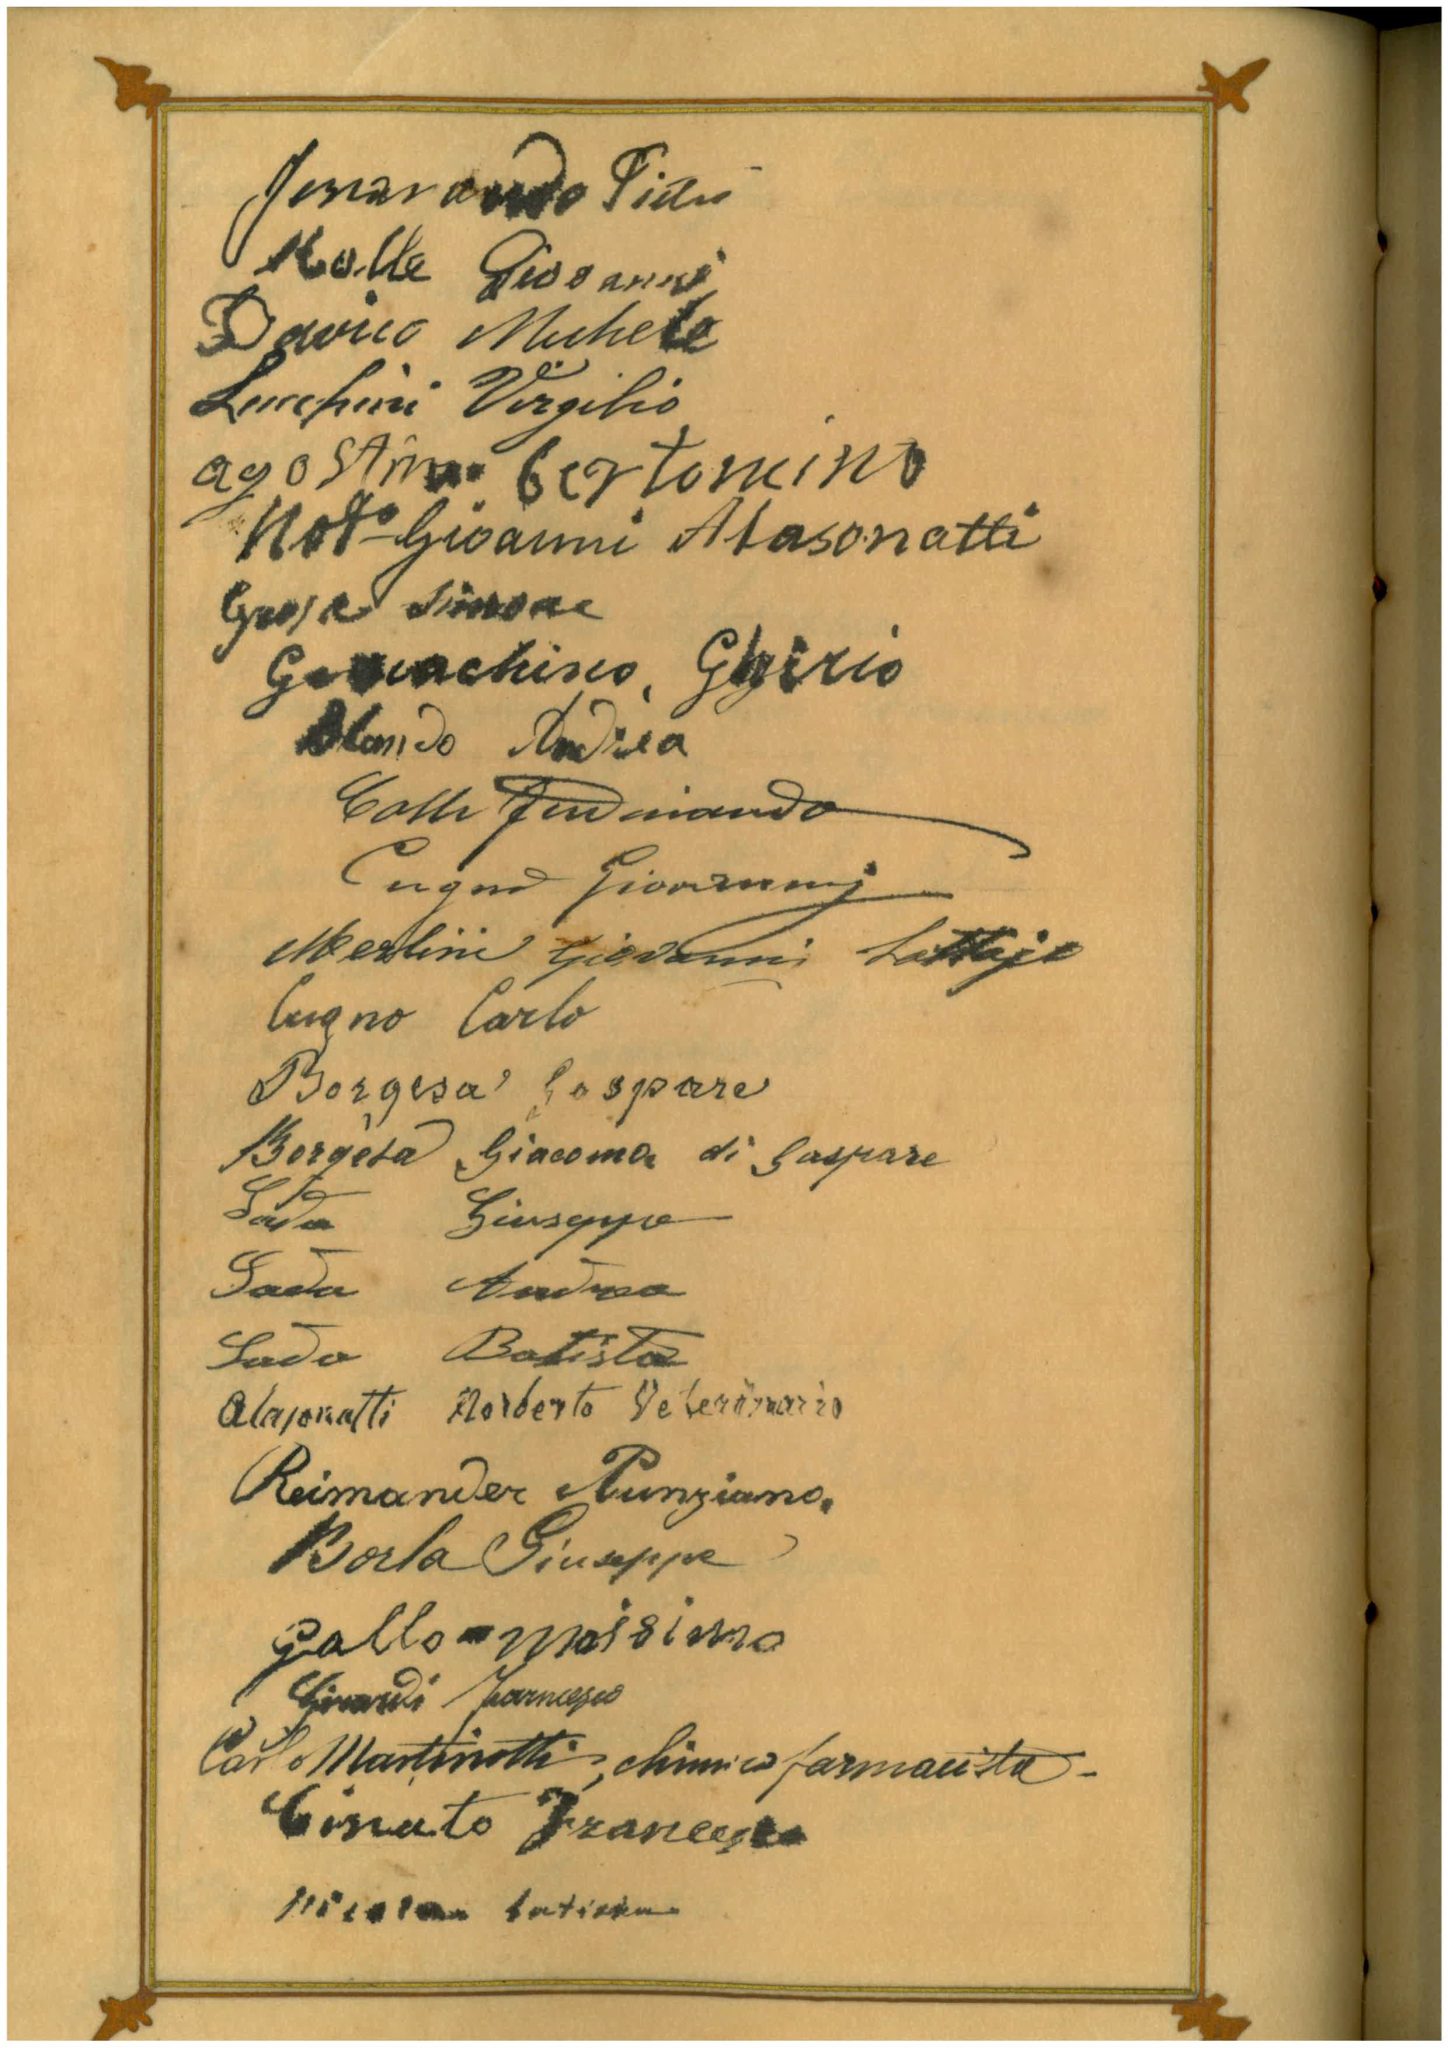 Molle Giovanni
Davico Michele
Lucchini Virgilio
agostino bertomino
Not.º Giovanni Alasonatti
Simone
Ghirio
Blando Andrea
Colli Ferdinando
Cugno Giovanni
Merlini Giovanni Lattajo
Cugno Carlo
Borgesa' Gaspare
Borgesa Giacomo di Gaspare
Sada Giuseppe
Sada Andrea
Sada Batista
Alasonatti Norberto Veterinario
Reimander Nunziano.
Borla Giuseppe
gallo masimo
Girardi Francesco
Carlo Martinotti, chimico farmacista -
Cinato Francesco